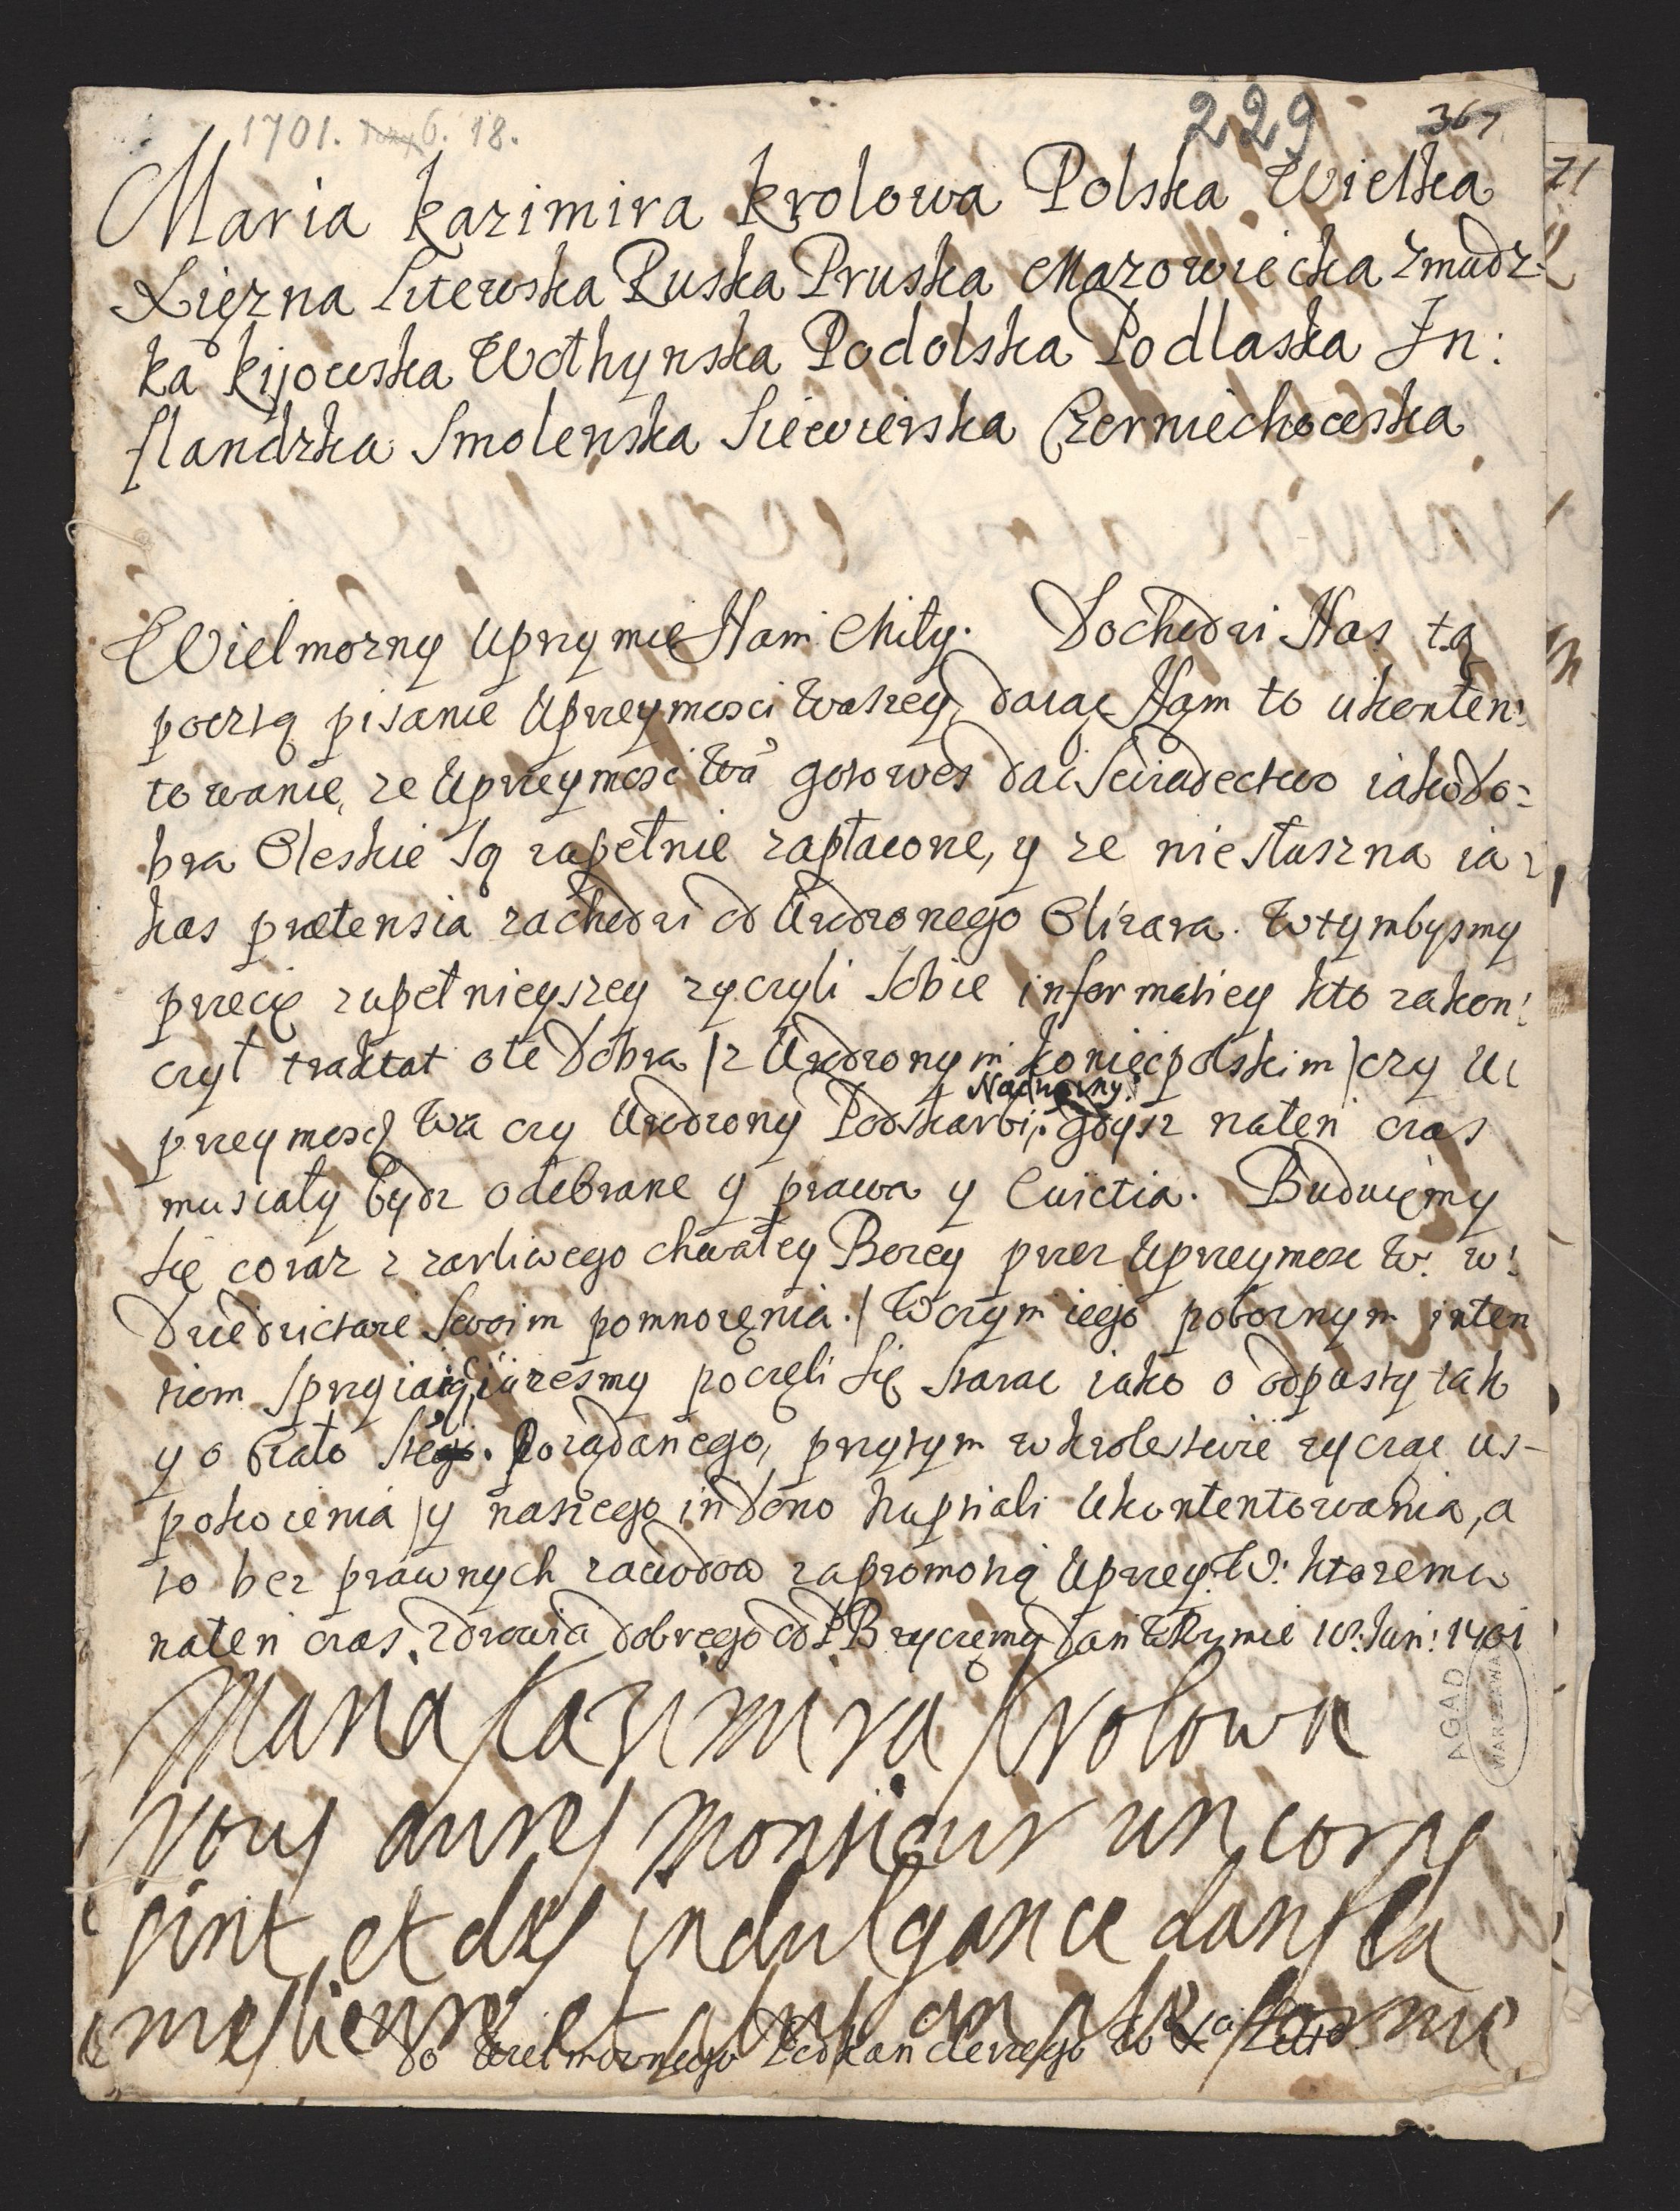 1701. 6. 18.
229
367
71
Maria Kazimira Krolowa Polska Wielka
Xięzna Litewska Ruska Pruska Mazowiecka Zmudz:
ka Kijowska Wołhynska Podolska Podlaska In:
flandzka Smolenska Siewierska Czerniechowska
Wielmozny Uprzymie Nam Miły. Dochodzi Nas tą
pocztą pisanie Uprzeymosci Waszey, daiąc Nam to ukonten:
towanie, ze Uprzeymosc Wa gotowes dac Swiadectwo iako do:
bra Oleskie Są zupełnie zapłacone, y ze nie słuszna ia:
kas prætensia zachodzi od Urodzonego Olizara. W tymbysmy
przecię zupełnieyszey zyczyli Sobie informatiey kto zakon:
czył traktat o te Dobra /z Urodzonym Koniecpolskim/ czy U:
przeymosc Wa czy Urodzony Podskarbi Nadworny: gdysz naten czas
musiały bydz odebrane y prawa y Euictia. Buduięmy
się coraz z zarliwego chwałey Bozey przez Uprzeymosc W. w:
Dziedzictwie Swoim pomnozęnia. / W czym iego poboznym inten
tiom Sprzyiaiąc, iuzesmy poczęli Się Starac iako o odpusty tak
y o Ciało Ste. Poządanego, przytym w krolestwie zycząc us-
pokoienia / y naszego in Dono nuptiali Ukontentowania, a
to bez prawnych zawodow za promotią Uprzey. W: ktoremu
naten czas zdrowia dobrego od P. B zyczęmy Dan w Rzymie 18. Iun: 1701
Maria Kazimira Krolowa
vous aures Monsieur un corps
sint et des indulgance dans la
melieure et plus an ple forme
Do Wielmoznego Podkanclerzego W X Litt
AGAD
WARSZAWA